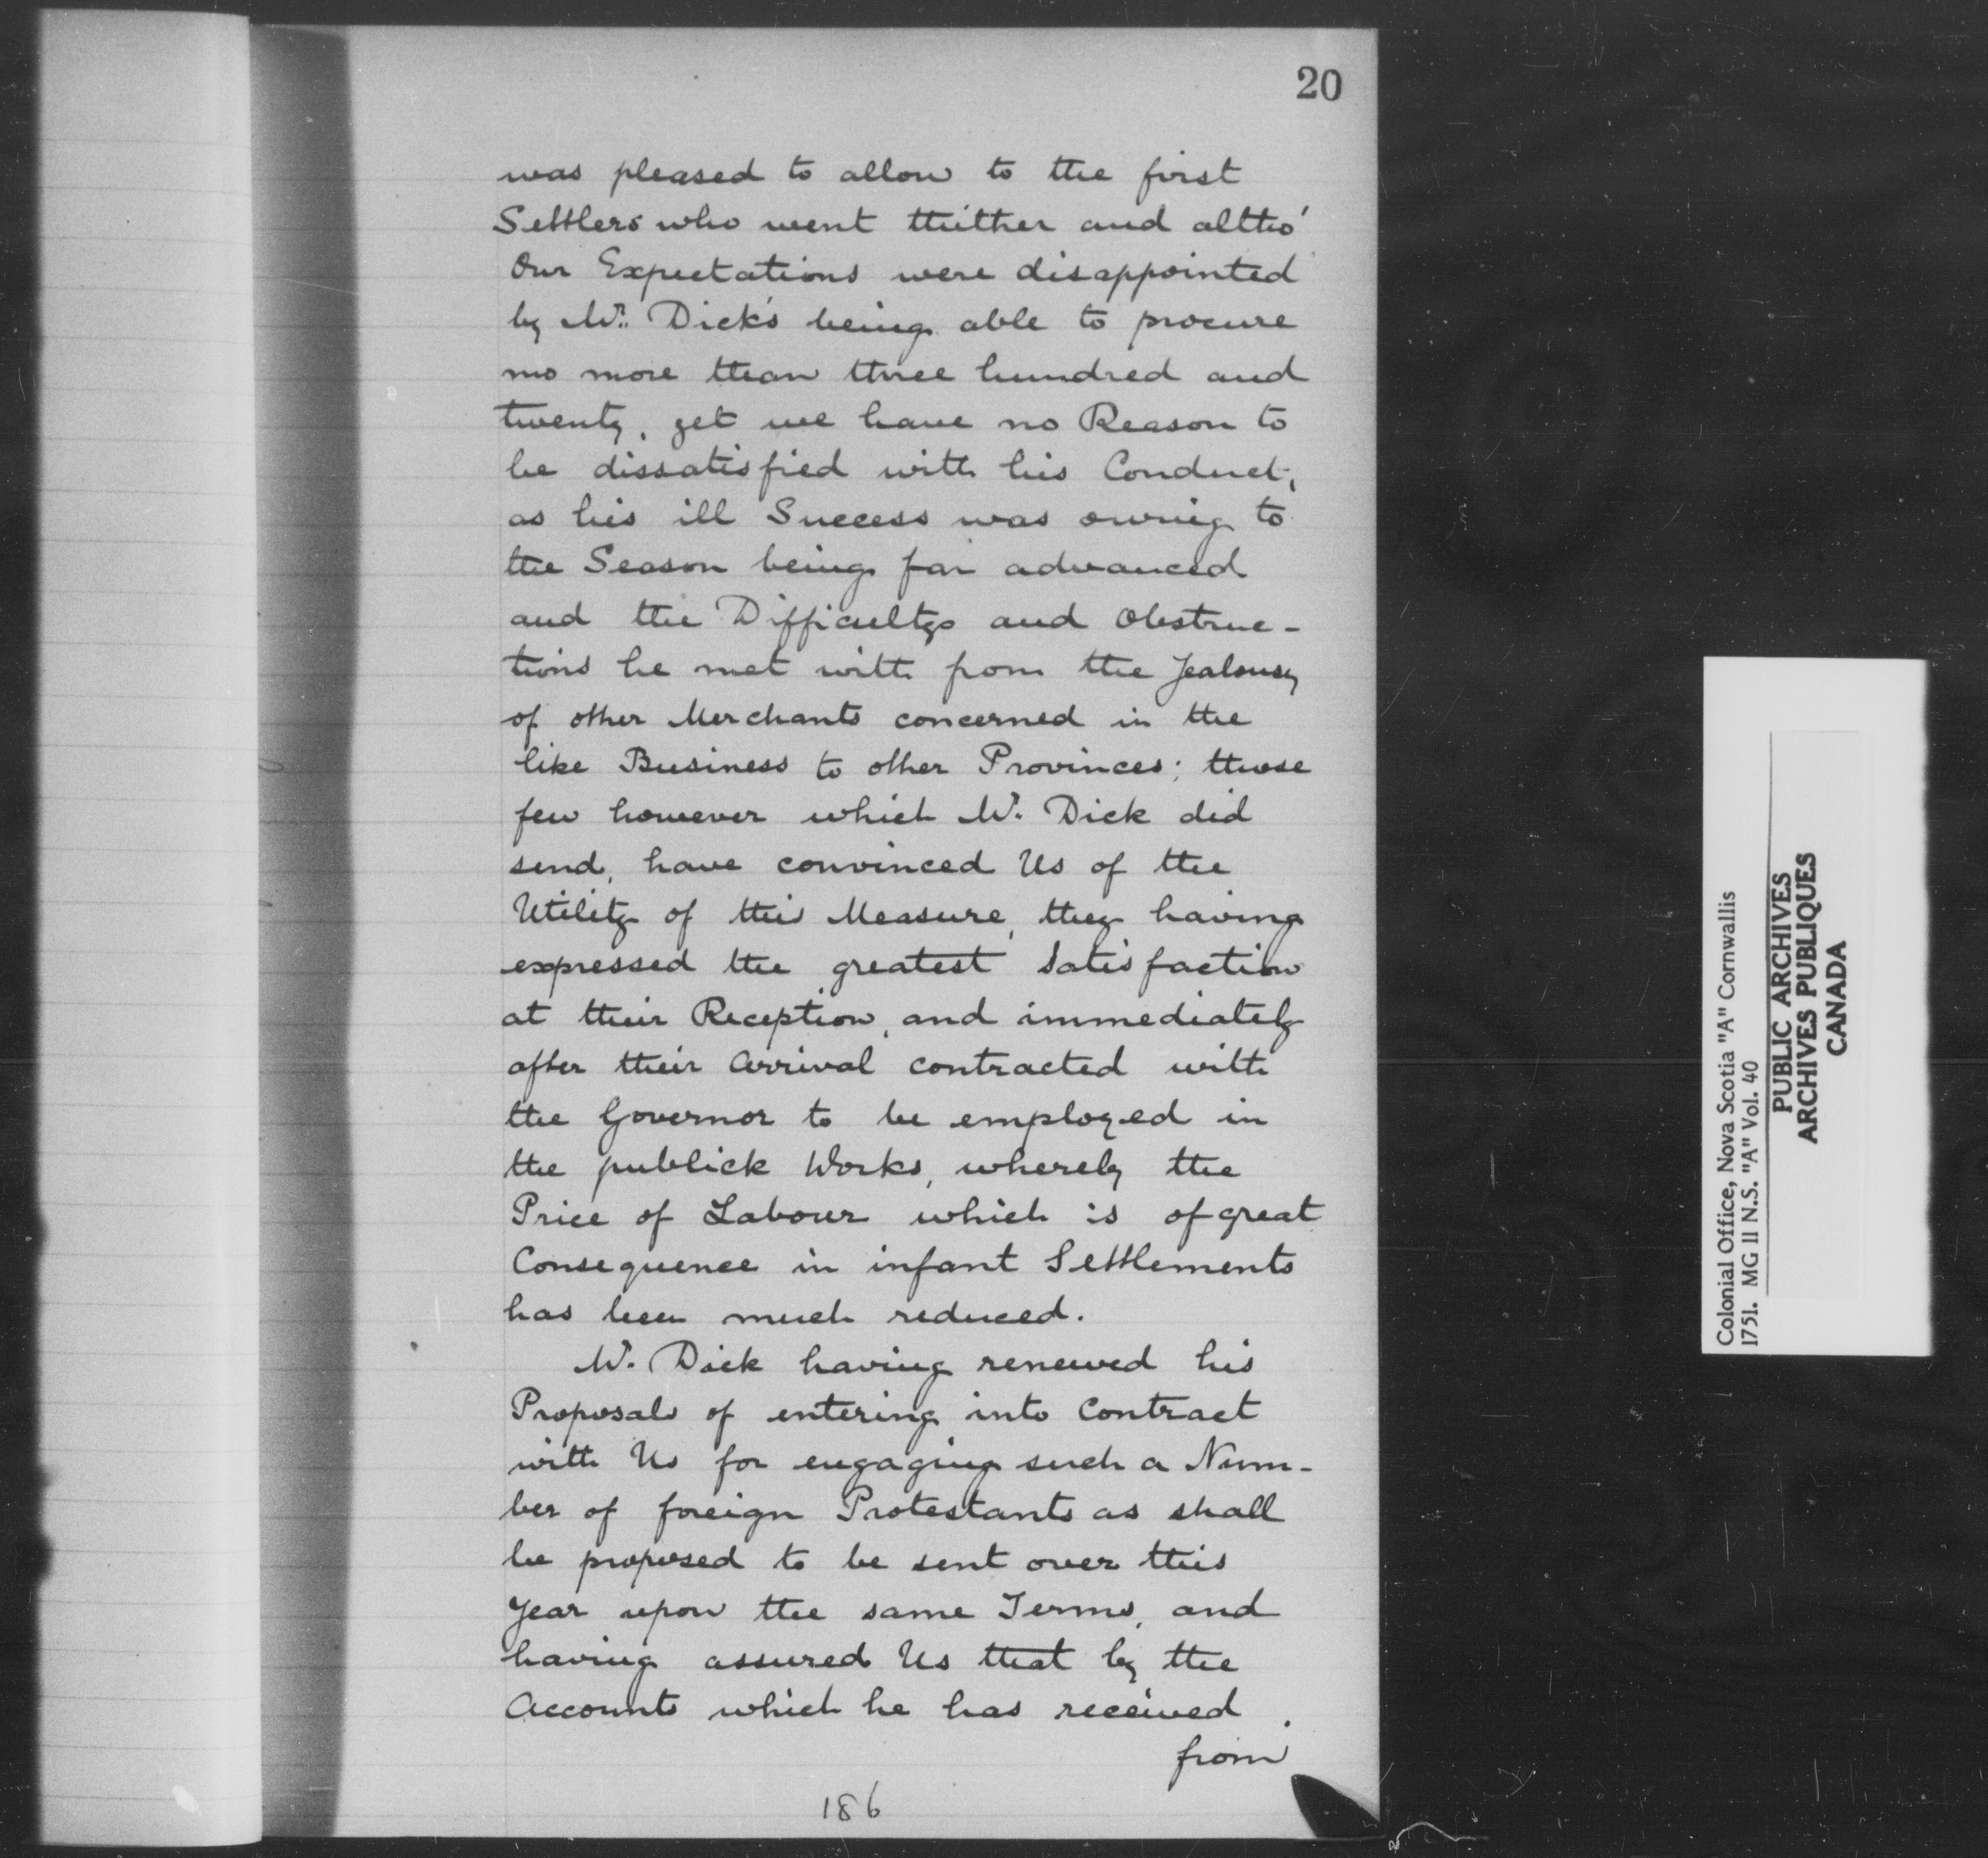 20
was pleased to allow to the first
Settlers who went thither and altho'
Our Expectations were disappointed
by Mr. Dick's being able to procure
no more than three hundred and
twenty, yet we have no Reason to
be dissatisfied with his Conduct,
as his ill Success was owing to
the Season being far advanced
and the Difficultys and Obstruc-
tions he met with from the Jealousy
of other Merchants concerned in the
like Business to other Provinces; those
few however which Mr. Dick did
send, have convinced Us of the
Utility of this Measure, they having
expressed the greatest Satisfaction
at their Reception, and immediately
after their Arrival contracted with
the Governor to be employed in
the publick Works, whereby the
Price of Labour which is of great
Consequence in infant Settlements
has been much reduced.
Mr. Dick having renewed his
Proposals of entering into Contract
with Us for engaging such a Num-
ber of foreign Protestants as shall
be proposed to be sent over this
Year upon the same Terms, and
having assured Us that by the
Accounts which he has received
from
186
Colonial Office, Nova Scotia "A" Cornwallis
1751. MG 11 N.S. "A" Vol. 40
PUBLIC ARCHIVES
ARCHIVES PUBLIQUES
CANADA